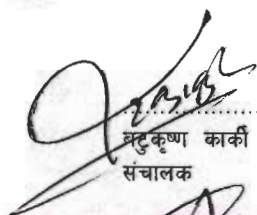 बटुकृष्ण कार्की
संचालक